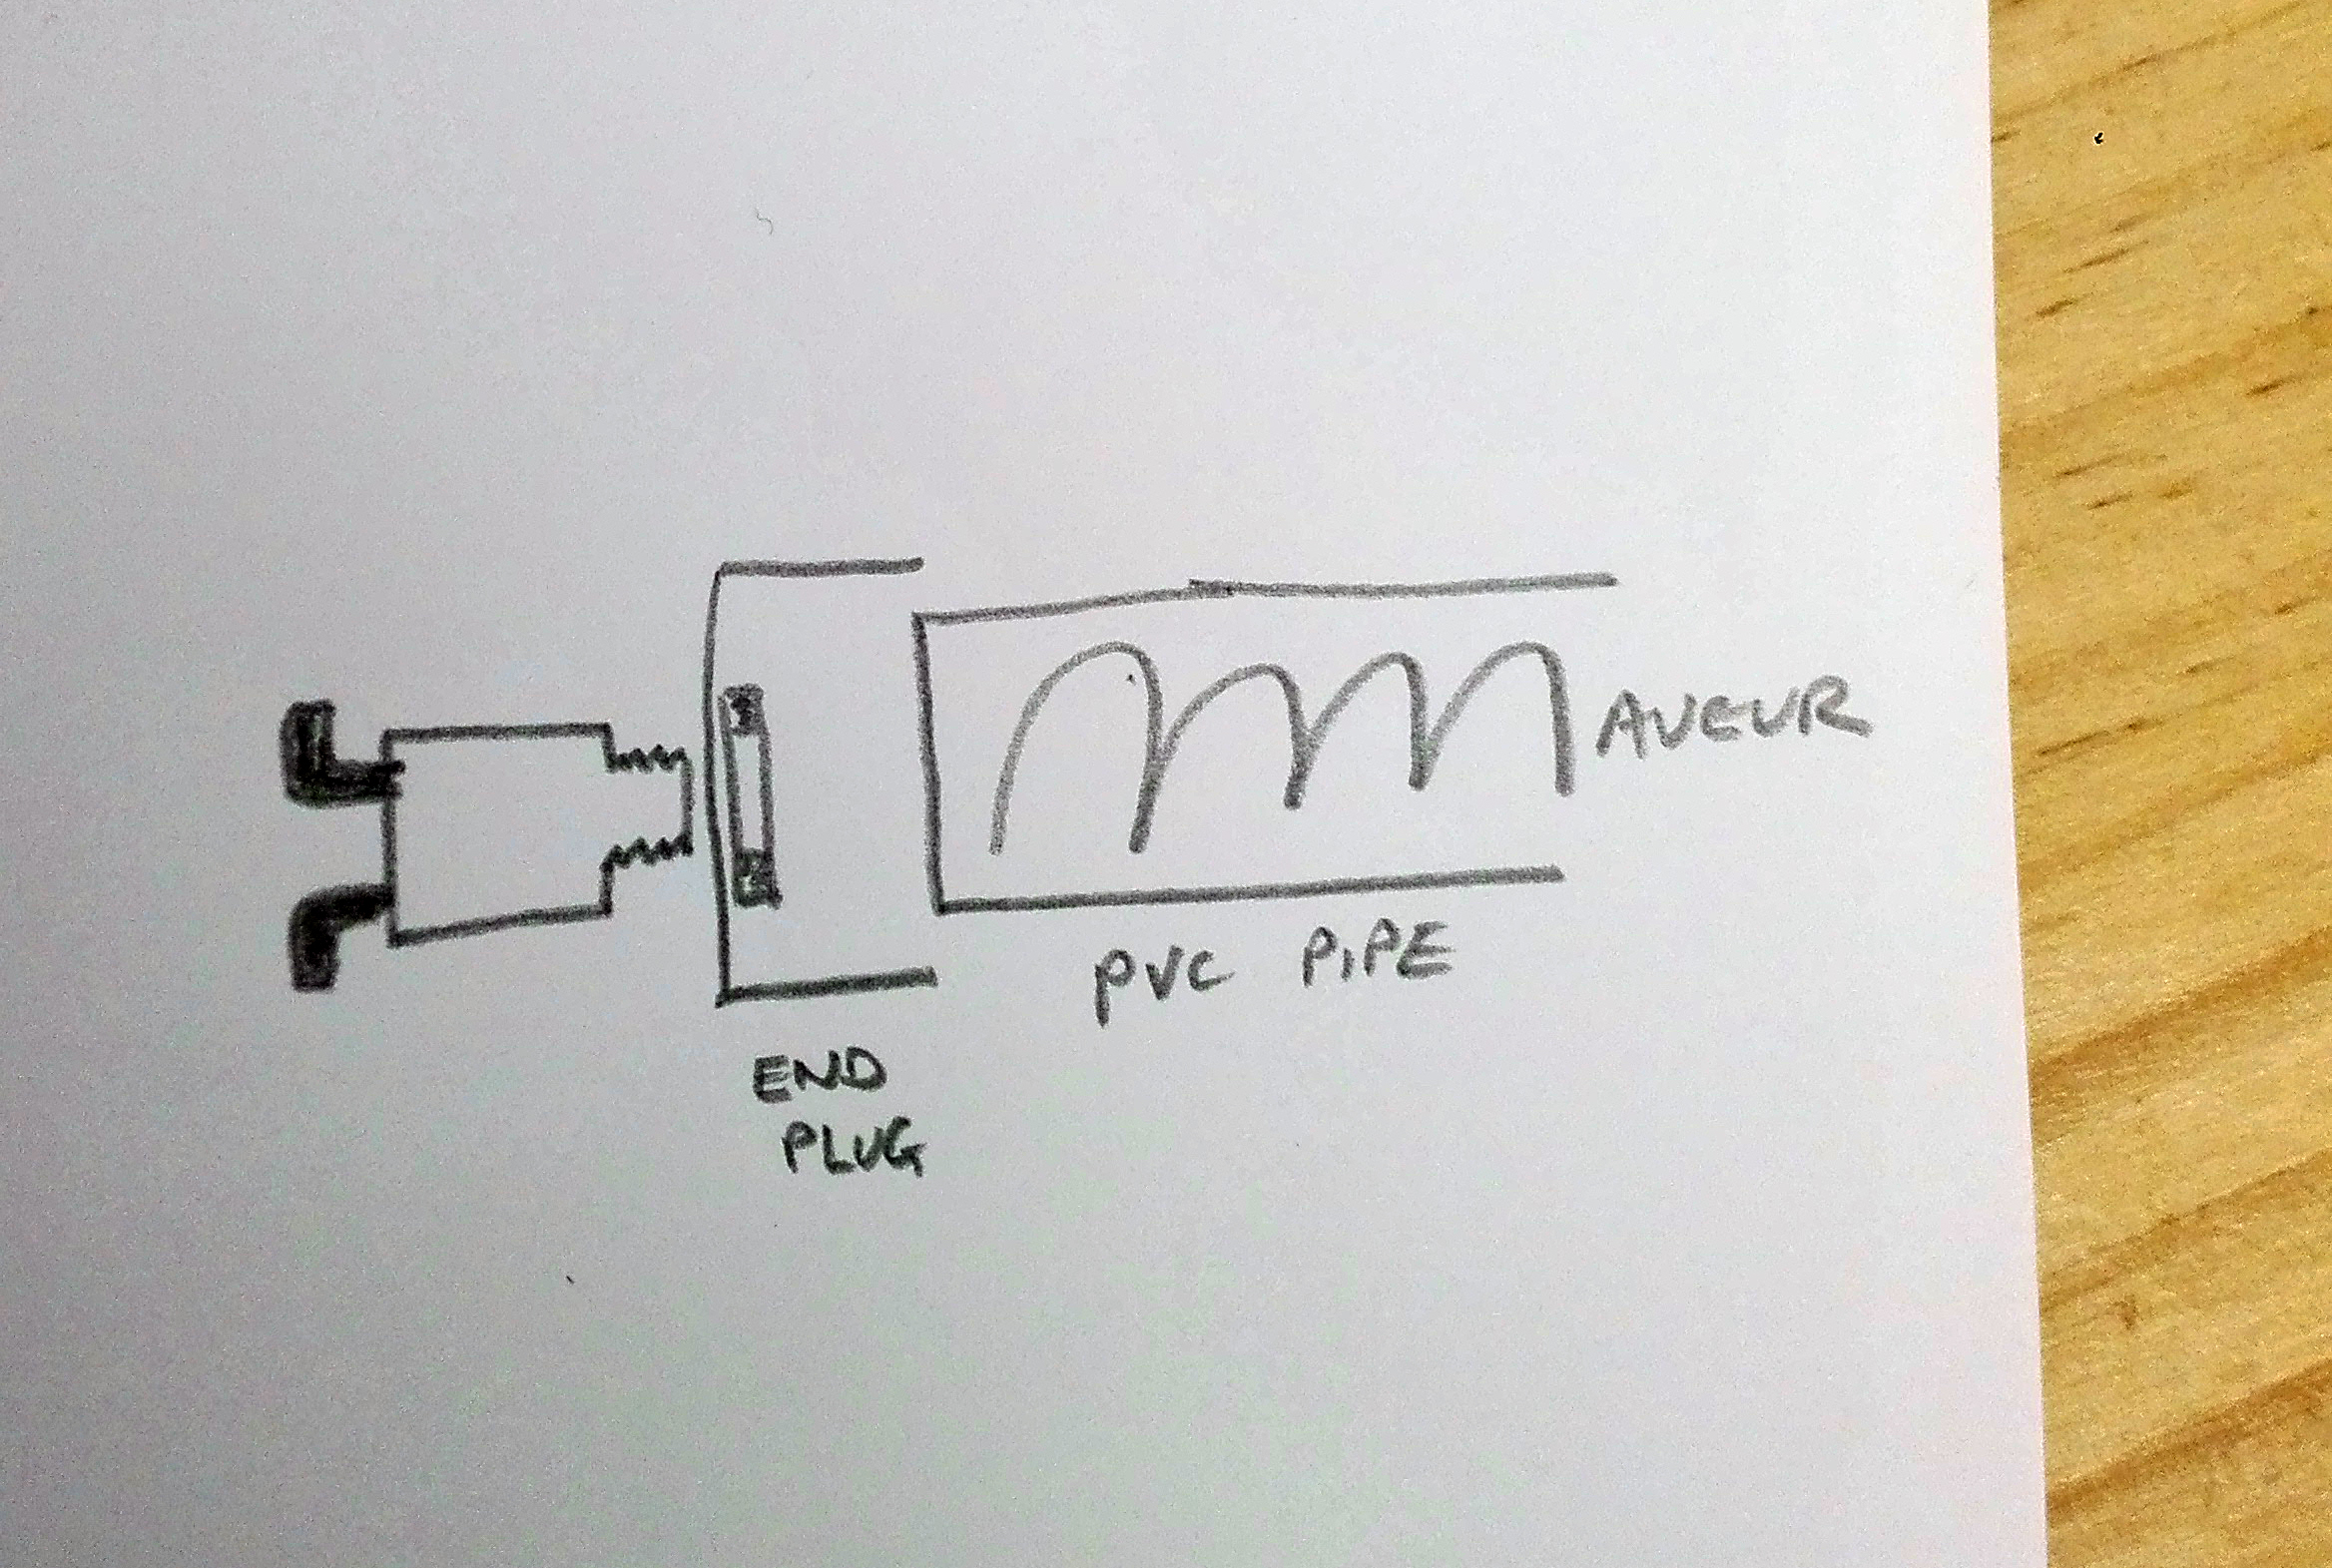 AUEUR
PVC PIPE
END
PLUG